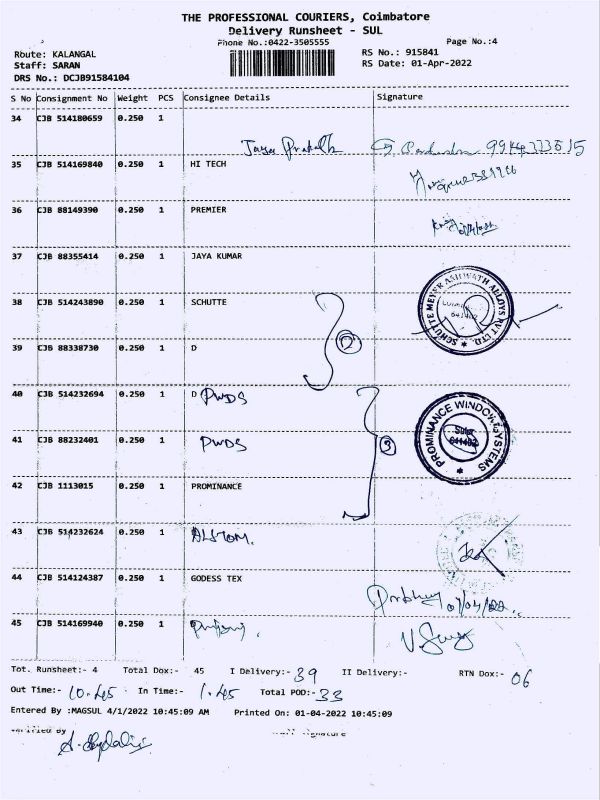 THE PROFESSIONAL COURIERS, Coimbatore
Delivery Runsheet - SUL
Phone No.:0422-3505555
Page No.:4
Route: KALANGAL
RS No.: 915841
Staff: SARAN
RS Date: 01-Apr-2022
DRS No.: DCJB91584104
S No Consignment No Weight PCS Consignee Details Signature
34 CJB 514180659 0.250 1
35 CJB 514169840 0.250 1 HI TECH
36 CJB 88149390 0.250 1 PREMIER
37 CJB 88355414 0.250 1 JAYA KUMAR
38 CJB 514243890 0.250 1 SCHUTTE
SCHUTTE MEYER ASHWATH ALLOYS PVT LTD.
39 CJB 88338730 0.250 1 D
2
40 CJB 514232694 0.250 1 D PWDS
PROMINANCE WINDOW SYSTEMS
Sulur
641402
41 CJB 88232401 0.250 1 PWDS
3
42 CJB 1113015 0.250 1 PROMINANCE
43 CJB 514232624 0.250 1 ALSTOM.
44 CJB 514124387 0.250 1 GODESS TEX
45 CJB 514169940 0.250 1
Tot. Runsheet:- 4 Total Dox:- 45 I Delivery:- 39 II Delivery:- RTN Dox:- 06
Out Time:- 10.45 In Time:- 1.45 Total POD:- 33
Entered By :MAGSUL 4/1/2022 10:45:09 AM Printed On: 01-04-2022 10:45:09
Verified By
Signature